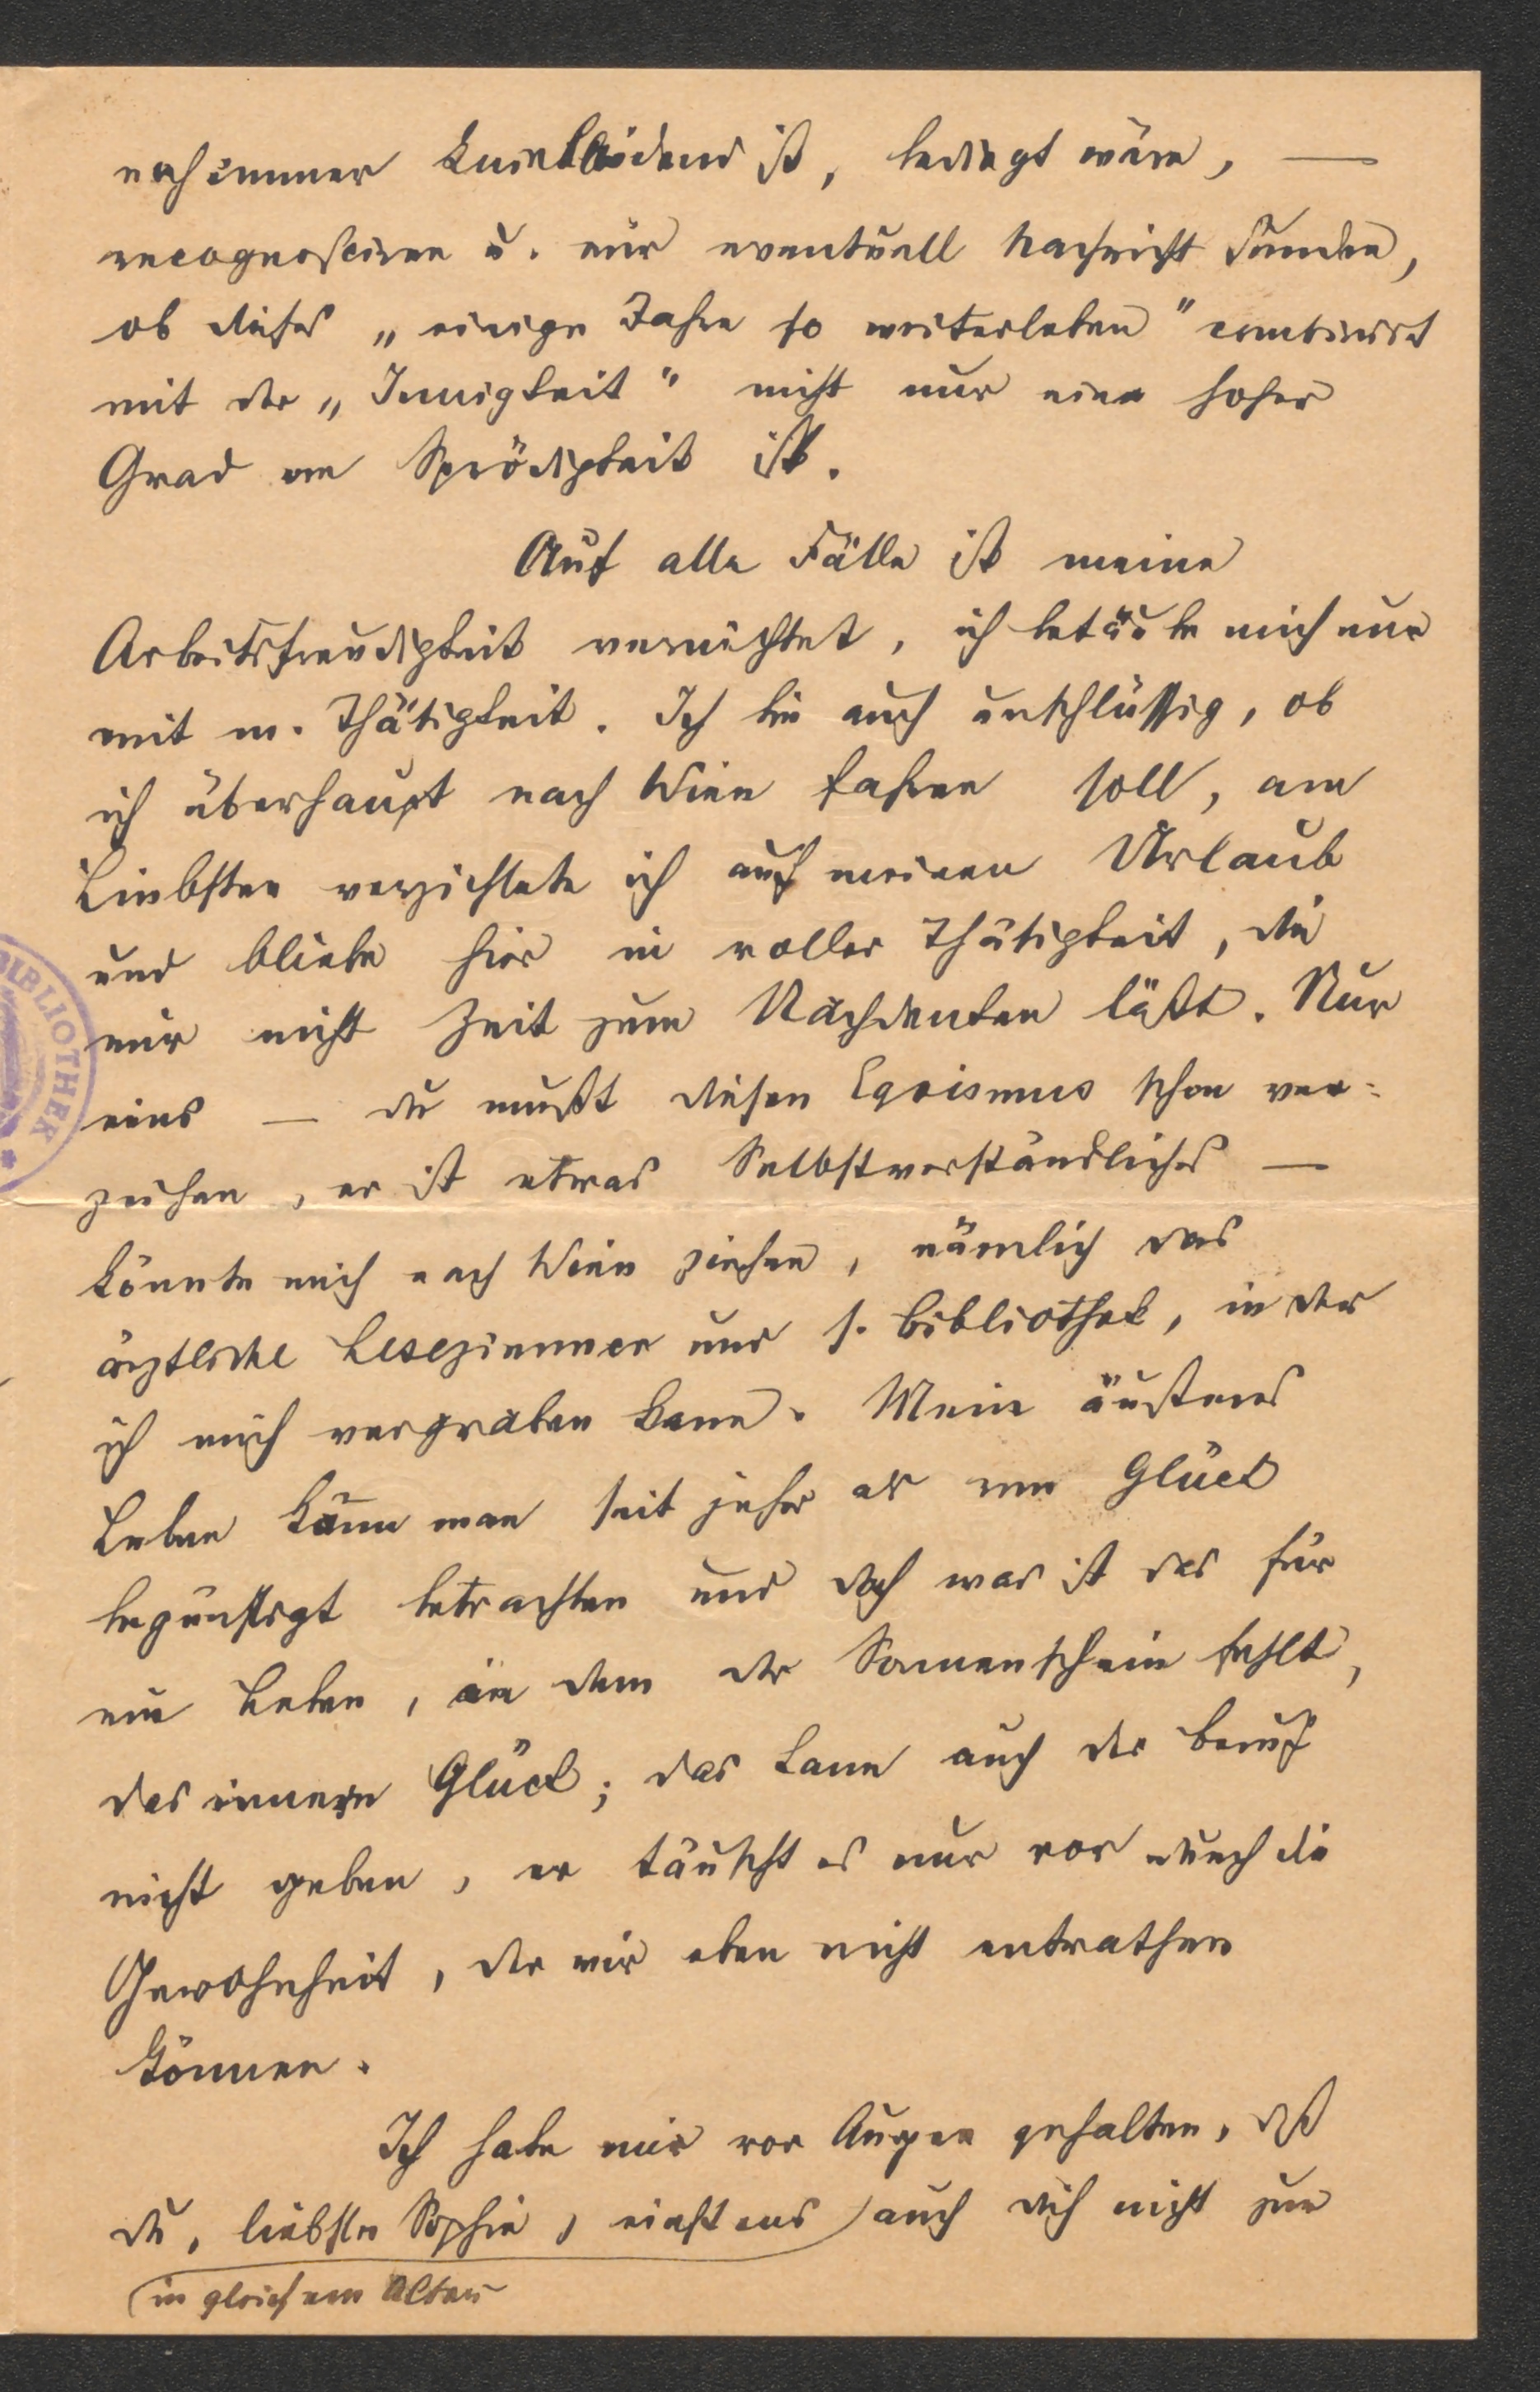 noch immer knieleidend ist, bedingt wäre, —
recognosciren u. mir eventuell Nachricht senden,
ob dieses „einige Jahre so weiterleben" combinirt
mit der „Innigkeit" nicht nur einen hoher
Grad von Sprödigkeit ist.
Auf alle Fälle ist meine
Arbeitsfreudigkeit vernichtet, ich betäube mich nur
mit m. Thätigkeit. Ich bin auch unschlüssig, ob
ich überhaupt nach Wien fahren soll, am
Liebsten verzichtete ich auf meinen Urlaub
und bliebe hier in voller Thätigkeit, die
mir nicht Zeit zum Nachdenken läßt. Nur
eins — du mußt diesen Egoismus schon ver-
zeihen, er ist etwas Selbstverständliches —
könnte mich nach Wien ziehen, nämlich das
ärztliche Lesezimmer und s. Bibliothek, in der
ich mich vergraben kann. Mein äußeres
Leben kann man seit jeher als vom Glück
begünstigt betrachten und doch was ist das für
ein Leben, in dem der Sonnenschein fehlt,
das innere Glück; das kann auch der Beruf
nicht geben, er täuscht es nur vor durch die
Gewohnheit, der wir eben nicht entrathen
können.
Ich habe mir vor Augen gehalten, dß
du, liebste Sophie, einstens auch dich nicht zum
in gleichem Alter
BIBLIOTHEK